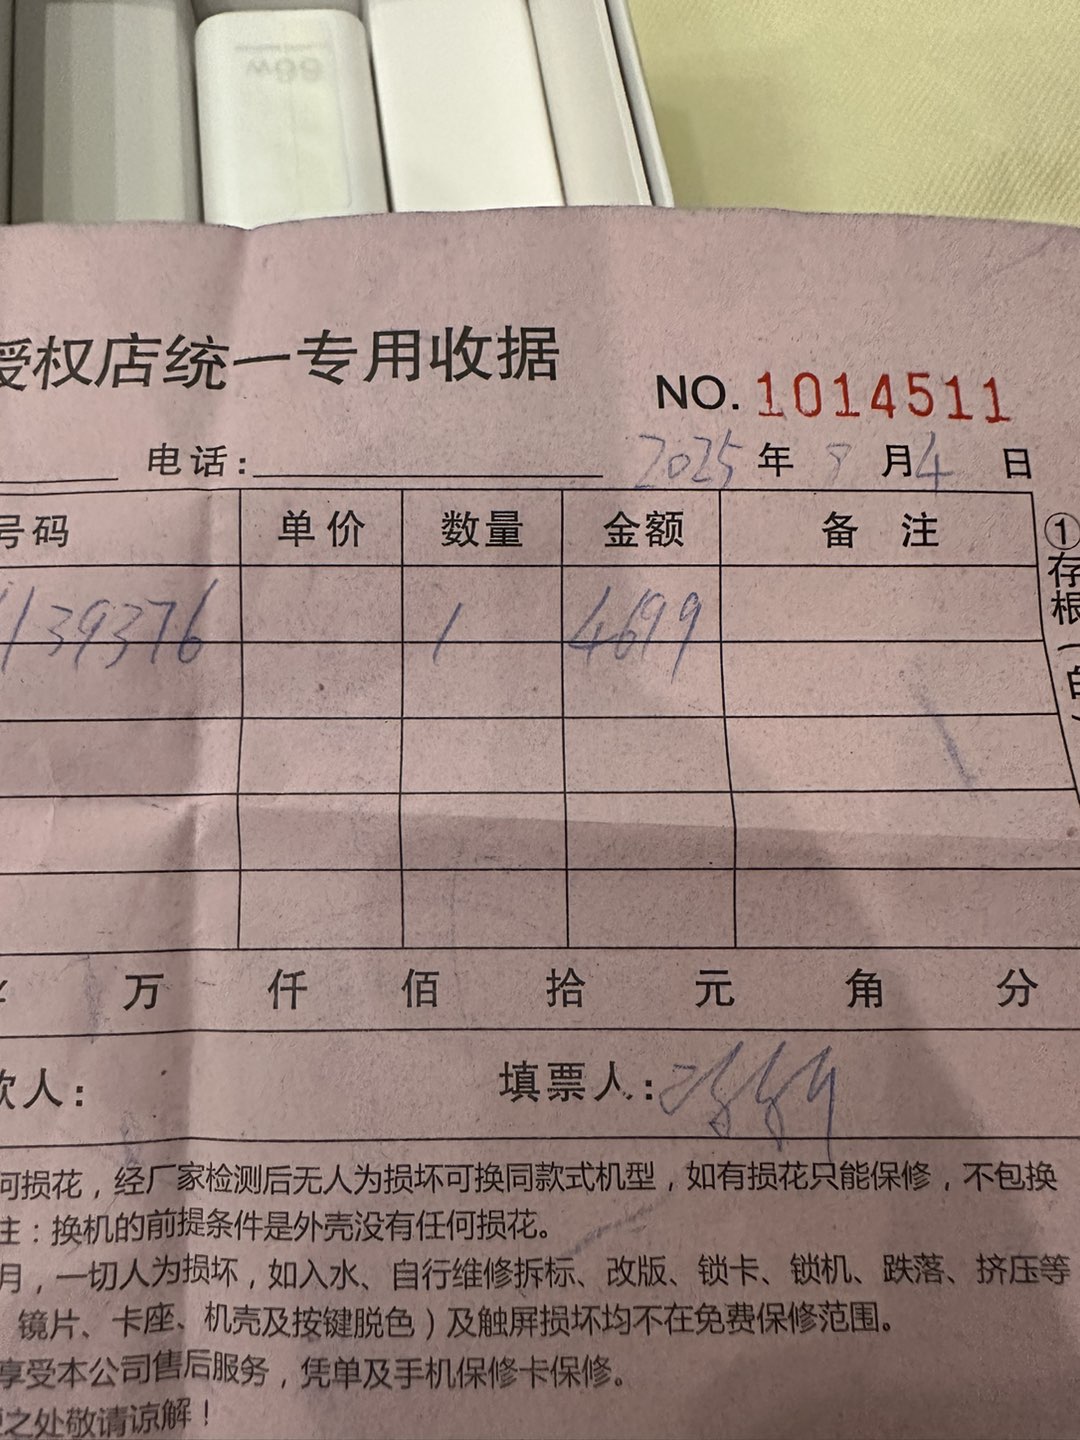 66W
授权店统一专用收据
NO. 1014511
电话: 2025 年 月 4 日
号码 单价 数量 金额 备注
139376 1 4699
①存根(白)
万 仟 佰 拾 元 角 分
款人: 填票人:
何损花，经厂家检测后无人为损坏可换同款式机型，如有损花只能保修，不包换
注：换机的前提条件是外壳没有任何损花。
月，一切人为损坏，如入水、自行维修拆标、改版、锁卡、锁机、跌落、挤压等
镜片、卡座、机壳及按键脱色）及触屏损坏均不在免费保修范围。
享受本公司售后服务，凭单及手机保修卡保修。
之处敬请谅解！